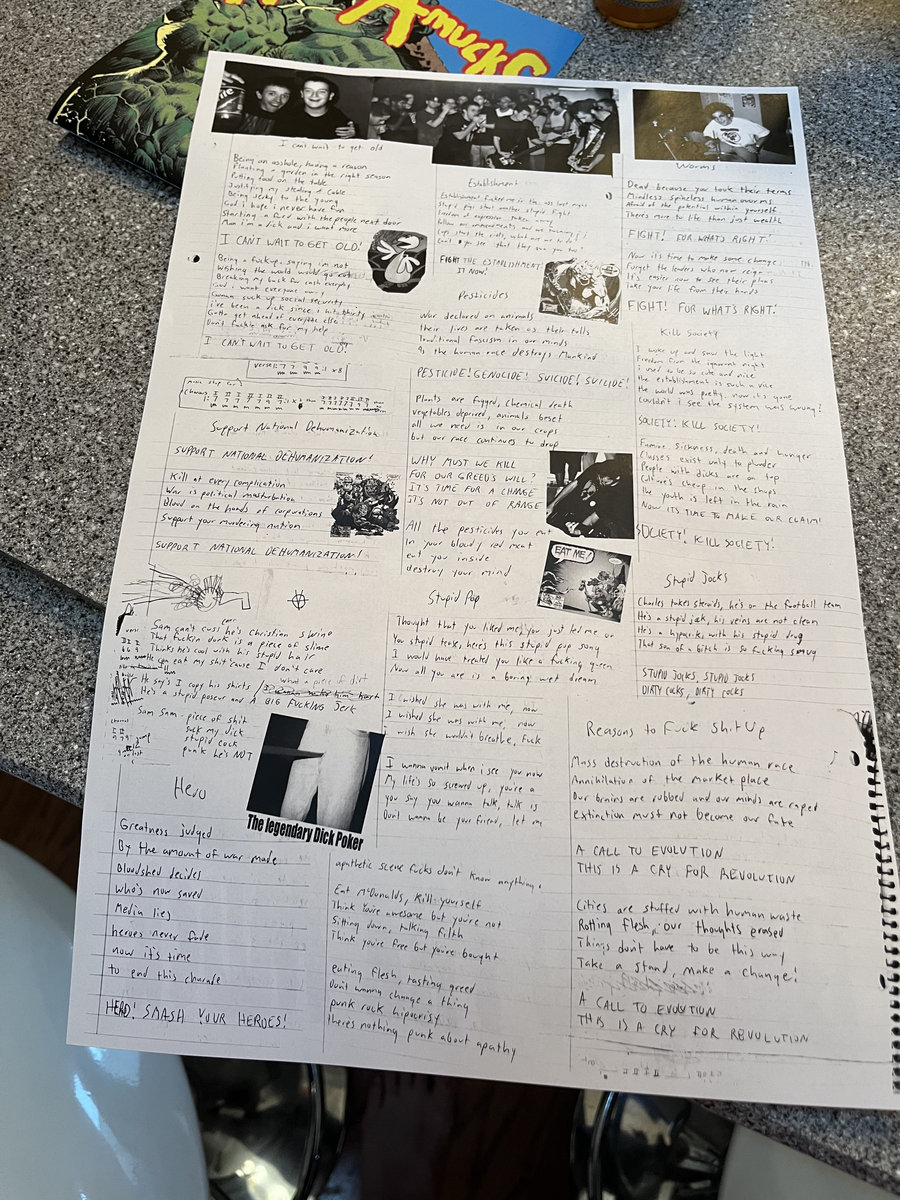 Amuck
I can't wait to get old
Being an asshole, having a reason
Planting a garden in the right season
Putting food on the table
Justifying my stealing of Cable
Being Jerky to the young
God I hope I never have fun
Starting a fued with the people next door
Man i'm a dick and i want more
I CAN'T WAIT TO GET OLD!
Being a fuckup, saying im not
Wishing the world would go
Breaking my back for cash everyday
God i want everyone
suck up social security
i've been a dick since i hit thirty
Gotta get ahead of everyone else
Don't fuckin ask for my help
I CAN'T WAIT TO GET OLD!
verse:
Chorus
Support National Dehumanization
SUPPORT NATIONAL DEHUMANIZATION!
Kill at every complication
War is political masturbation
Blood on the hands of corporations
Support your murdering nation
SUPPORT NATIONAL DEHUMANIZATION!
Sam can't cuss he's Christian swine
That fuckin dork is a piece of slime
Thinks he's cool with his stupid hair
He can eat my shit 'cause I don't care
what a piece of dirt
He say's I copy his shirts
He's a stupid poseur and A BIG FUCKING Jerk
Sam Sam piece of shit
suck my dick
stupid cock
punk he's NOT
The legendary Dick Poker
Hero
Greatness judged
By the amount of war made
Bloodshed decides
who's now saved
Media lies
heroes never fade
now it's time
to end this charade
HERO! SMASH YOUR HEROES!
Establishment
Establishment fucked me in the ass last night
Stupid pigs start another stupid fight
Freedom of expression taken away
Can't you see that they own you too?
FIGHT THE ESTABLISHMENT!
IT NOW!
Pesticides
War declared on animals
their lives are taken as their tolls
Traditional fascism in our minds
As the human race destroys Mankind
PESTICIDE! GENOCIDE! SUICIDE! SUICIDE!
Plants are fogged, chemical death
vegetables deprived, animals beset
all we need is in our crops
but our race continues to drop
WHY MUST WE KILL
FOR OUR GREED'S WILL?
IT'S TIME FOR A CHANGE
IT'S NOT OUT OF RANGE
All the pesticides you eat
In your bloody red meat
eat you inside
destroy your mind
EAT ME!
Stupid Pop
Thought that you liked me, you just led me on
You stupid tease, here's this stupid pop song
I would have treated you like a fucking queen
Now all you are is a boring wet dream
I wished she was with me, now
I wished she was with me, now
I wish she wouldn't breathe, fuck
I wanna vomit when i see you now
My life's so screwed up, you're a
you say you wanna talk, talk is
Don't wanna be your friend, let me
apathetic scene fucks don't know anything.
Eat McDonalds, Kill yourself
Think You're awesome but you're not
Sitting down, talking filth
Think you're free but you're bought
eating flesh, tasting greed
Don't wanna change a thing
punk rock hipocrisy
theres nothing punk about apathy
Worms
Dead because you took their terms
Mindless spineless human worms
Afraid of the potential within yourself
There's more to life than just wealth
FIGHT! FOR WHAT'S RIGHT!
Now it's time to make some change
Forget the leaders who now reign
It's easier now to see their plans
Take your life from their hands
FIGHT! FOR WHAT'S RIGHT!
Kill Society
I woke up and saw the light
Freedom from the ignorant right
i used to be so cute and nice
the establishment is such a vice
the world was pretty, now it's gone
Couldn't i see the system was wrong?
SOCIETY! KILL SOCIETY!
Famine, Sickness, death and hunger
Classes exist only to plunder
People with dicks are on top
Culture's cheap in the shops
the youth is left in the rain
Now IT'S TIME TO MAKE OUR CLAIM!
SOCIETY! KILL SOCIETY!
Stupid Jocks
Charles takes steroids, he's on the football team
He's a stupid jock, his veins are not clean
He's a hypocrite, with his stupid drug
That son of a bitch is so fucking smug
STUPID JOCKS, STUPID JOCKS
DIRTY COCKS, DIRTY COCKS
Reasons to Fuck Shit Up
Mass destruction of the human race
Annihilation of the market place
Our brains are robbed and our minds are raped
extinction must not become our fate
A CALL TO EVOLUTION
THIS IS A CRY FOR REVOLUTION
Cities are stuffed with human waste
Rotting flesh, our thoughts erased
Things don't have to be this way
Take a stand, make a change!
A CALL TO EVOLUTION
THIS IS A CRY FOR REVOLUTION